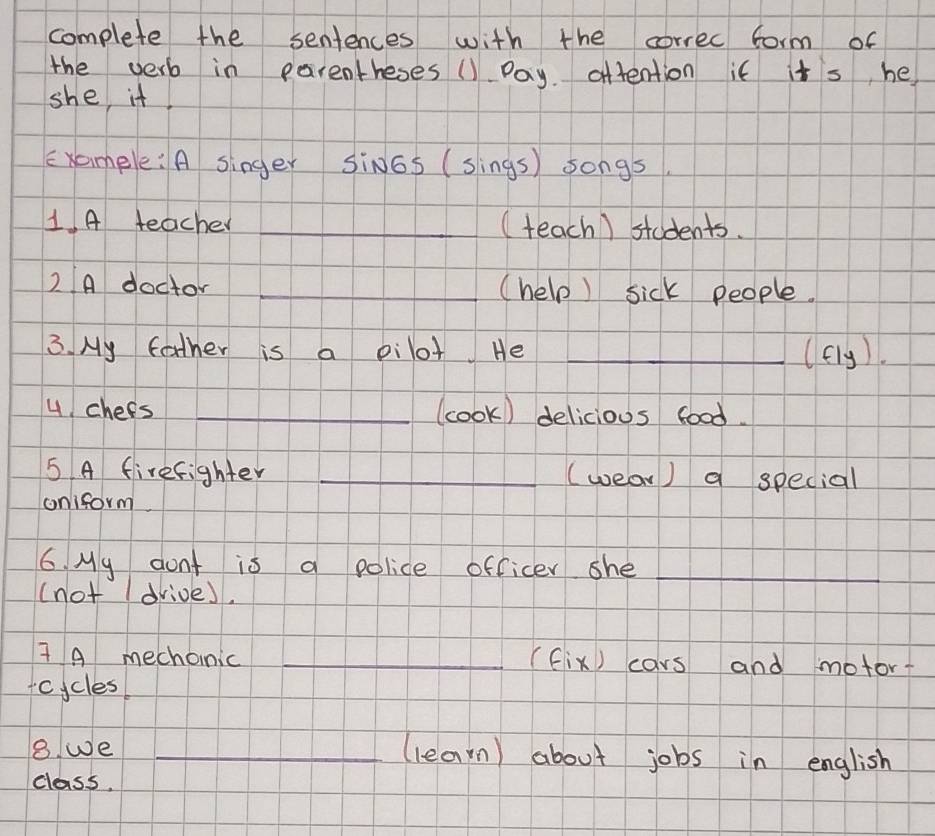 complete the sentences with the correc form of
the verb in parentheses (). Pay. attention if it's he,
she, it.
Example: A singer SiNGS (sings) songs.
1. A teacher __________ (teach) students.
2. A doctor __________ (help) sick people.
3. My father is a pilot. He __________ (fly).
4. chefs __________ (cook) delicious food.
5. A firefighter __________ (wear) a special
uniform.
6. My aunt is a police officer she __________
(not / drive).
7 A mechanic __________ (fix) cars and motor-
-cycles.
8. we __________ (learn) about jobs in english
class.